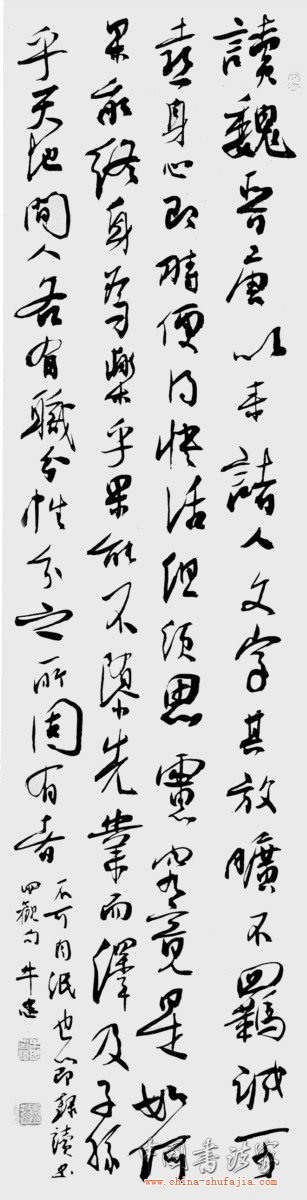 讀魏晉唐以来諸人文字其放曠不羈誠可
喜身心即時便得快活但須思慮究竟是如何
果能終身為樂乎果能不隳先業而澤及子孫
乎天地間人各有職分性分之所固有者
不可自泯也節錄讀書
四觀句 牛忠
中国书法家
www.china-shufajia.com